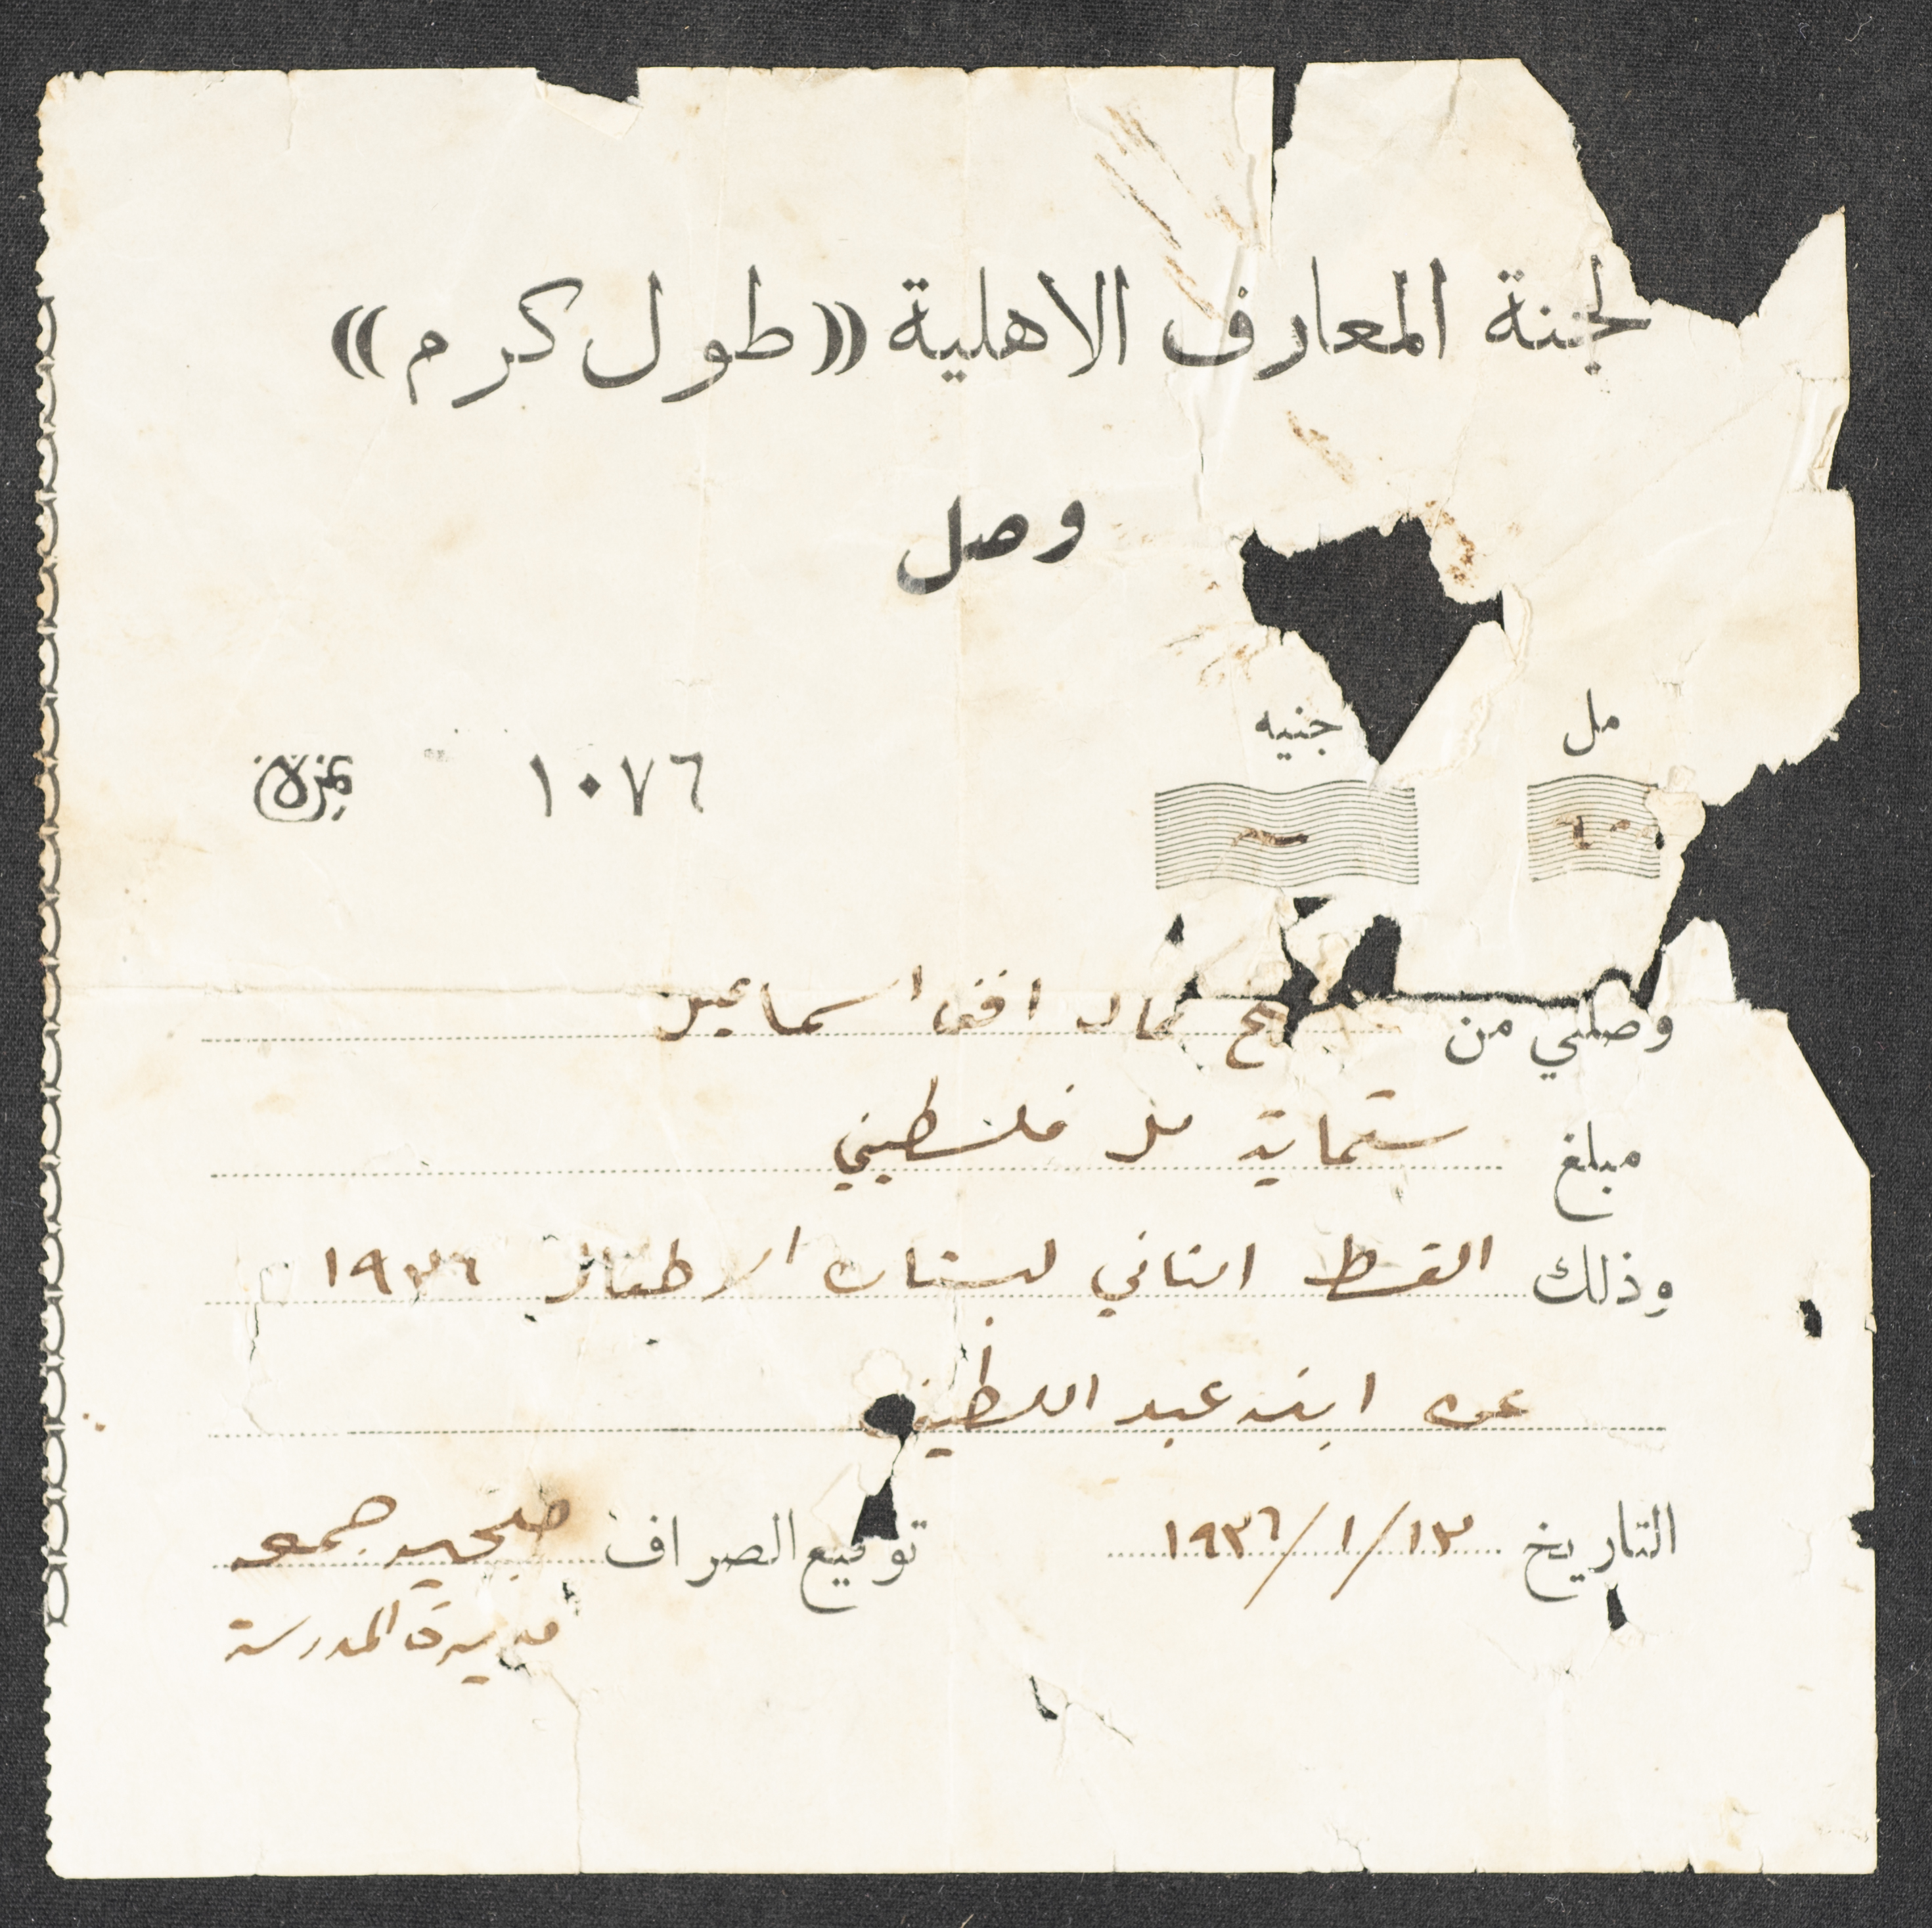 لجنة المعارف الاهلية «طول كرم»
وصل
مل جنيه
٦٠٠ ١٠٧٦ نمرة
وصلني من جمال افندي اسماعيل
مبلغ ستماية مل فلسطيني
وذلك القسط الثاني لبستان الاطفال ١٩٣٦
عن ابنه عبد اللطيف
التاريخ ١٣/١/١٩٣٦ توقيع الصراف
مديرة المدرسة